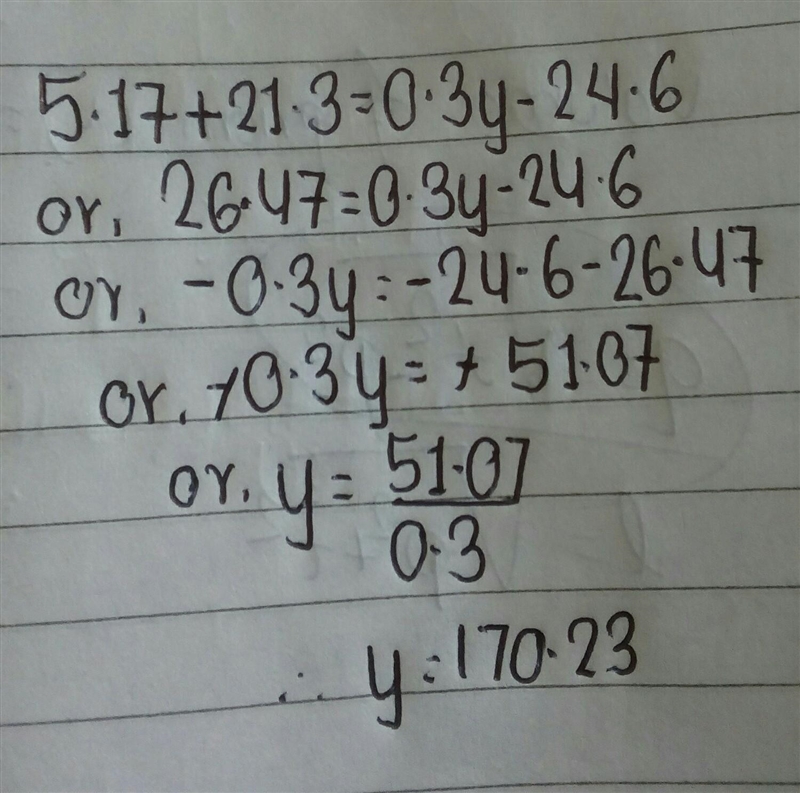 5·17+21·3=0·3y-24·6
or, 26·47=0·3y-24·6
or, -0·3y=-24·6-26·47
or, +0·3y=+51·07
or, y=51·07/0·3
∴ y=170·23